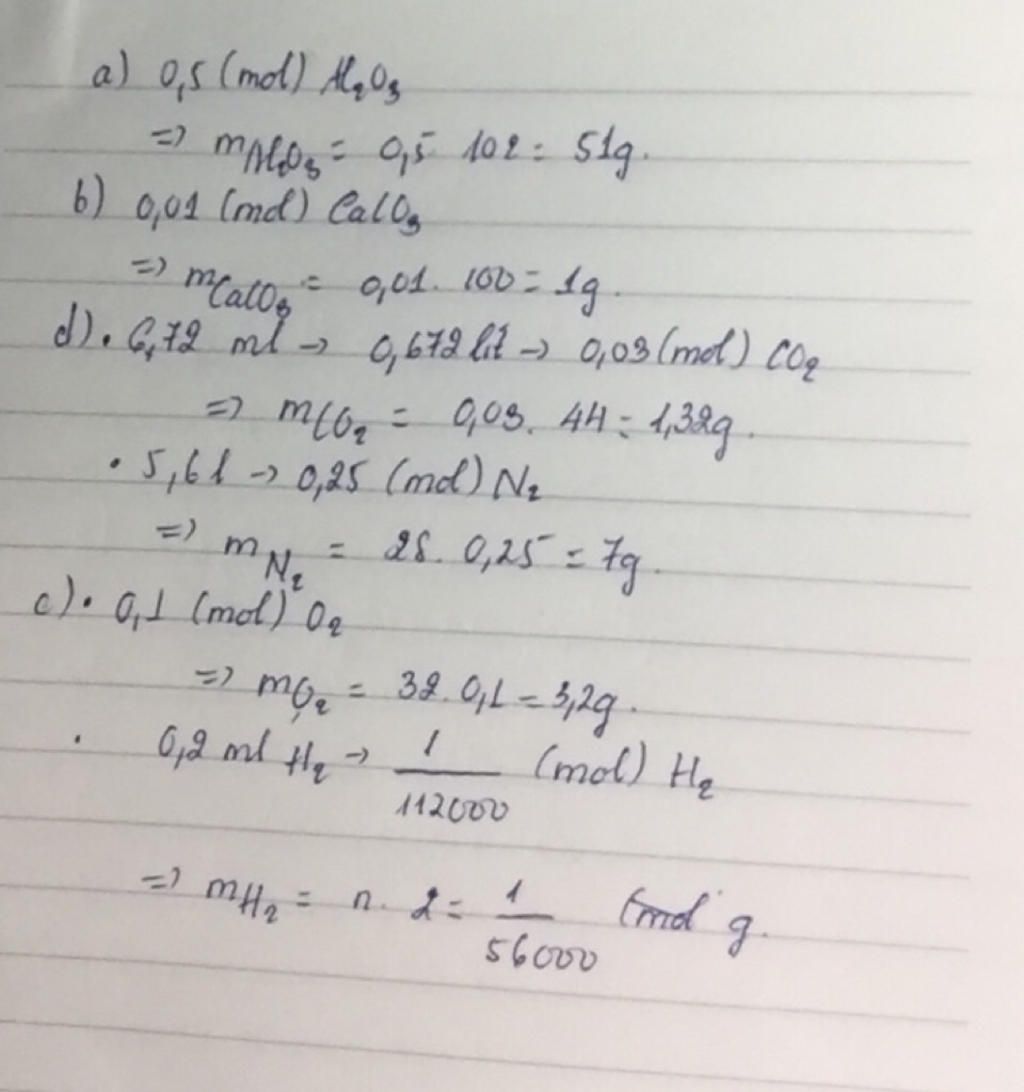 a) 0,5 (mol) Al₂O₃
=> mAl₂O₃ = 0,5 102 = 51g.
b) 0,01 (mol) CaCO₃
=> mCaCO₃ = 0,01. 100 = 1g.
d) • 6,72 ml → 0,672 lít → 0,03 (mol) CO₂
=> mCO₂ = 0,03. 44 = 1,32g.
• 5,6l → 0,25 (mol) N₂
=> mN₂ = 28. 0,25 = 7g.
c) • 0,1 (mol) O₂
=> mO₂ = 32. 0,1 = 3,2g.
• 0,2 ml H₂ → 1/112000 (mol) H₂
=> mH₂ = n. 2 = 1/56000 g.